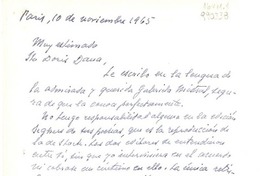 Paris, 10 de noviembre 1965
Muy estimada
Sra Doris Dana,
Le escribo en la lengua de
la admirada y querida Gabriela Mistral, segu-
ra de que la conoce perfectamente.
No tengo responsabilidad alguna en la edición
de sus poesías, que es la reproducción
de la de Stock. Los dos editores se entendieron
entre sí, sin que yo interviniera en el acuerdo
ni cobrara un céntimo en ello. La única